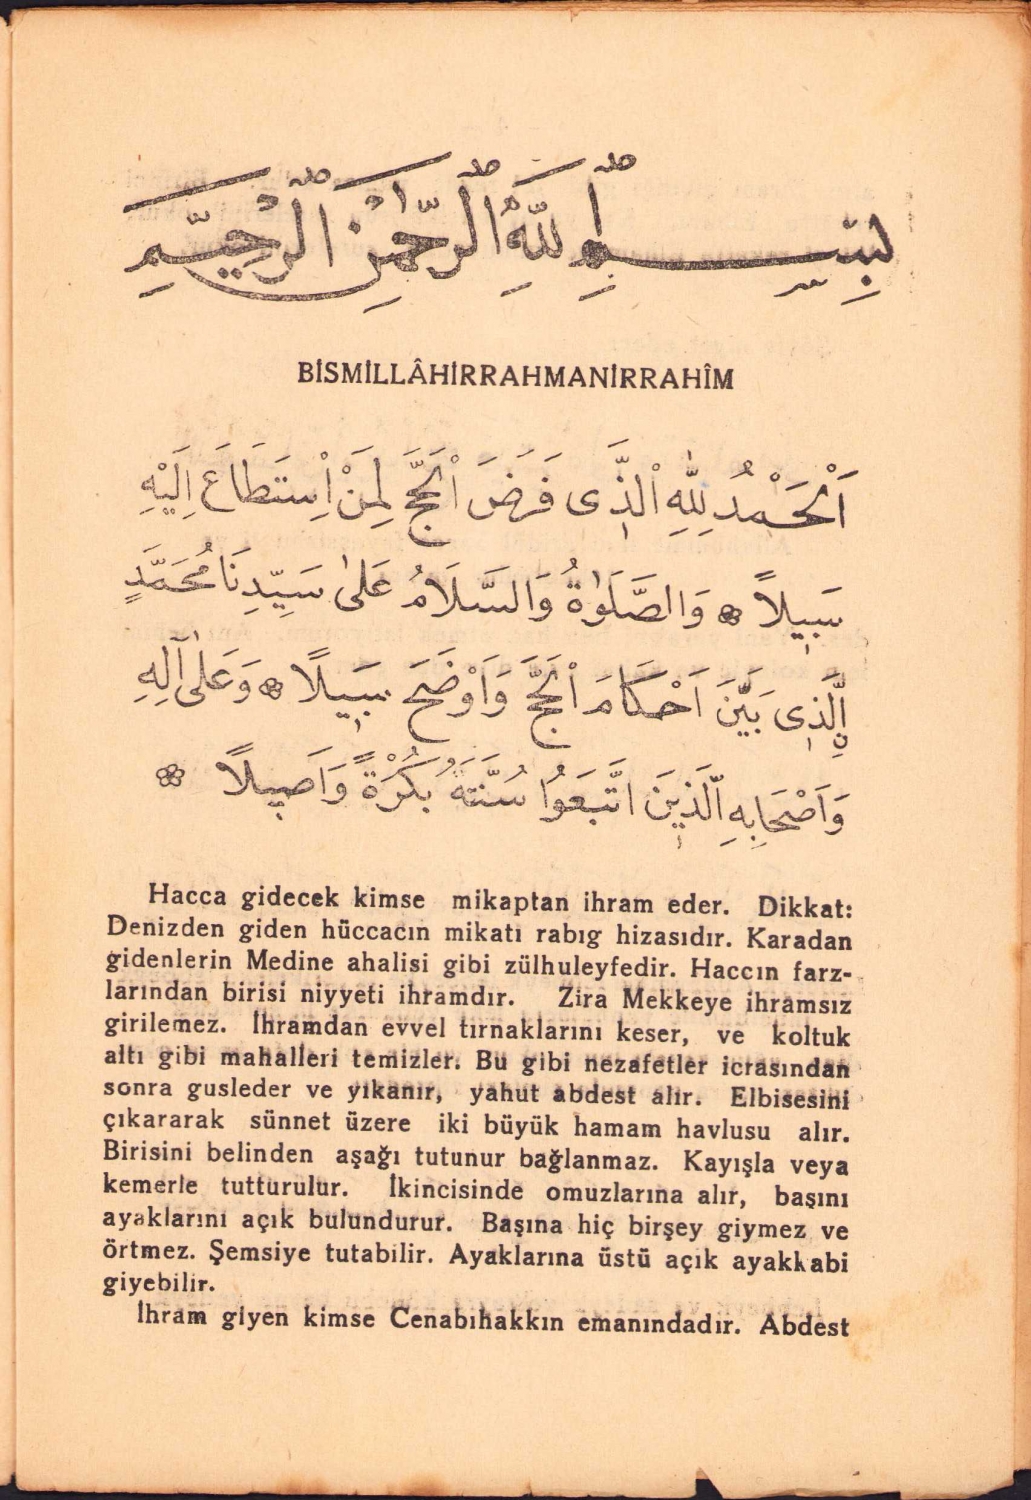 بِسْمِ اللّٰهِ الرَّحْمٰنِ الرَّحِيمِ
BİSMİLLÂHİRRAHMANİRRAHÎM
اَلْحَمْدُ لِلّٰهِ الْذَّى فَرَضَ الْحَجَّ لِمَنْ اِسْتَطَاعَ اِلَيْهِ
سَبِيلاً ❁ وَالصَّلَوٰةُ وَالسَّلَامُ عَلىٰ سَيِّدِنَا مُحَمَّدٍ
الَّذِى بَيَّنَ اَحْكَامَ الْحَجَّ وَاَوْضَحَ سَبِيلًا ❁ وَعَلٰى آلِهِ
وَاَصْحَابِهِ الَّذِينَ اتَّبَعُوا سُنَّتَهُ بُكْرَةً وَاَصِيلًا ❁
Hacca gidecek kimse mikaptan ihram eder. Dikkat:
Denizden giden hüccacın mikatı rabıg hizasıdır. Karadan
gidenlerin Medine ahalisi gibi zülhuleyfedir. Haccın farz-
larından birisi niyyeti ihramdır. Zira Mekkeye ihramsız
girilemez. İhramdan evvel tırnaklarını keser, ve koltuk
altı gibi mahalleri temizler. Bu gibi nezafetler icrasından
sonra gusleder ve yıkanır, yahut abdest alır. Elbisesini
çıkararak sünnet üzere iki büyük hamam havlusu alır.
Birisini belinden aşağı tutunur bağlanmaz. Kayışla veya
kemerle tutturulur. İkincisinde omuzlarına alır, başını
ayaklarını açık bulundurur. Başına hiç birşey giymez ve
örtmez. Şemsiye tutabilir. Ayaklarına üstü açık ayakkabi
giyebilir.
İhram giyen kimse Cenabıhakkın emanındadır. Abdest